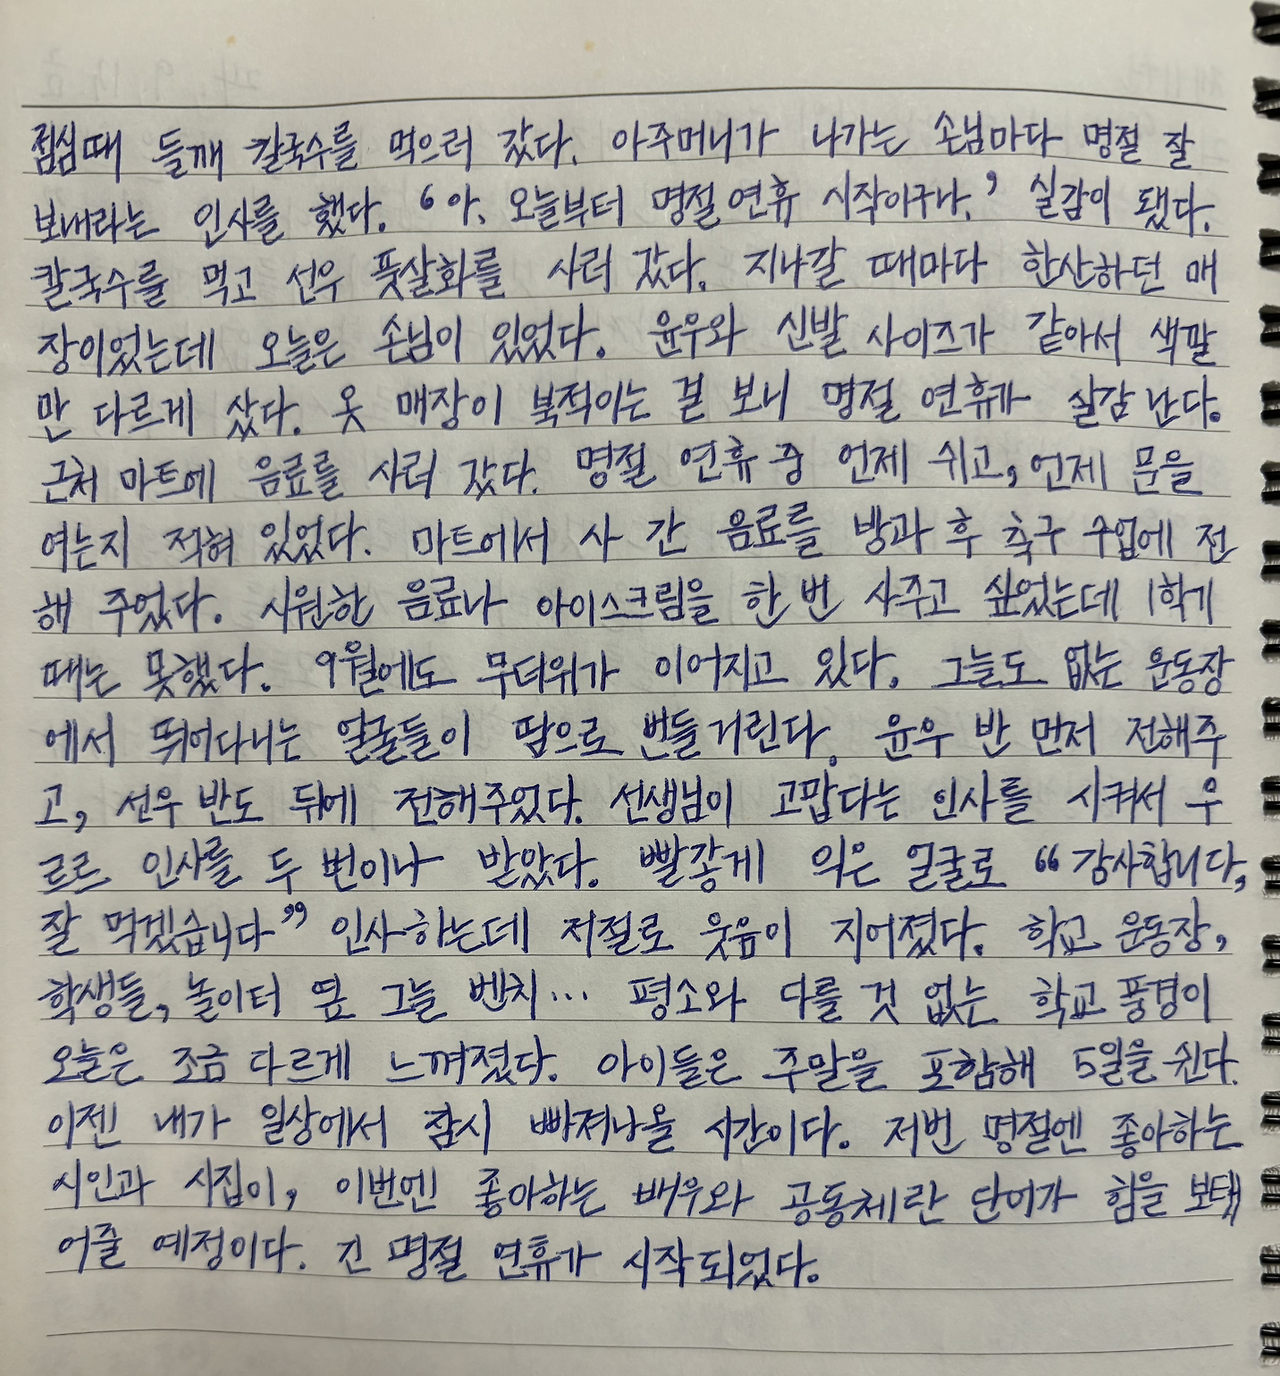 점심때 들깨 칼국수를 먹으러 갔다. 아주머니가 나가는 손님마다 명절 잘
보내라는 인사를 했다. ‘아, 오늘부터 명절 연휴 시작이구나.’ 실감이 됐다.
칼국수를 먹고 선우 풋살화를 사러 갔다. 지나갈 때마다 한산하던 매
장이었는데 오늘은 손님이 있었다. 윤우와 신발 사이즈가 같아서 색깔
만 다르게 샀다. 옷 매장이 북적이는 걸 보니 명절 연휴가 실감 난다.
근처 마트에 음료를 사러 갔다. 명절 연휴 중 언제 쉬고, 언제 문을
여는지 적혀 있었다. 마트에서 사 간 음료를 방과 후 축구 수업에 전
해 주었다. 시원한 음료나 아이스크림을 한 번 사주고 싶었는데 1학기
때는 못했다. 9월에도 무더위가 이어지고 있다. 그늘도 없는 운동장
에서 뛰어다니는 얼굴들이 땀으로 번들거린다. 윤우 반 먼저 전해주
고, 선우 반도 뒤에 전해주었다. 선생님이 고맙다는 인사를 시켜서 우
르르 인사를 두 번이나 받았다. 빨갛게 익은 얼굴로 “감사합니다,
잘 먹겠습니다” 인사하는데 저절로 웃음이 지어졌다. 학교 운동장,
학생들, 놀이터 옆 그늘 벤치… 평소와 다를 것 없는 학교 풍경이
오늘은 조금 다르게 느껴졌다. 아이들은 주말을 포함해 5일을 쉰다.
이젠 내가 일상에서 잠시 빠져나올 시간이다. 저번 명절엔 좋아하는
시인과 시집이, 이번엔 좋아하는 배우와 공동체란 단어가 힘을 보태
어줄 예정이다. 긴 명절 연휴가 시작되었다.